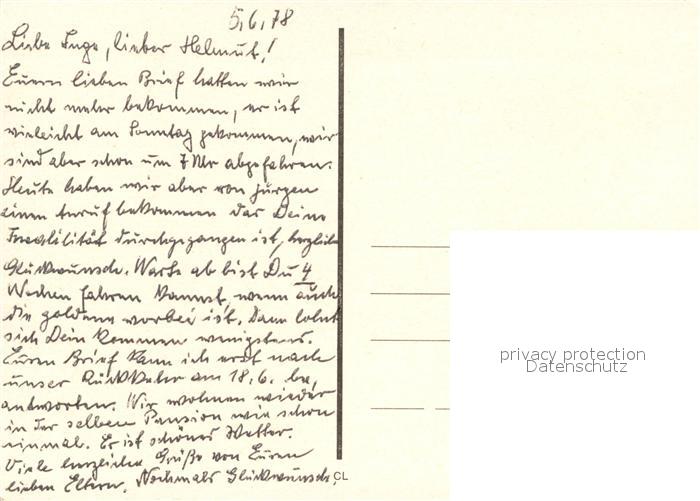 5.6.78
Liebe Inge, lieber Helmut!
Euern lieben Brief hatten wir
nicht mehr bekommen, er ist
vieleicht am Sonntag gekommen, wir
sind aber schon um 7 Uhr abgefahren.
Heute haben wir aber von Jürgen
einen Anruf bekommen das Deine
Invalilität durchgegangen ist, herzlichen
Glückwunsch. Warte ab bist Du 4
Wochen fahren kannst, wenn auch
die goldene vorbei ist. Dann lohnt
sich Dein kommen wenigstens.
Euren Brief kann ich erst nach
unser Rückkehr am 18.6. be,
antworten. Wir wohnen wieder
in der selben Pension wie schon
einmal. Es ist schönes Wetter.
Viele herzlichen Grüße von Euren
lieben Eltern. Nochmals Glückwunsch.
CL
privacy protection
Datenschutz